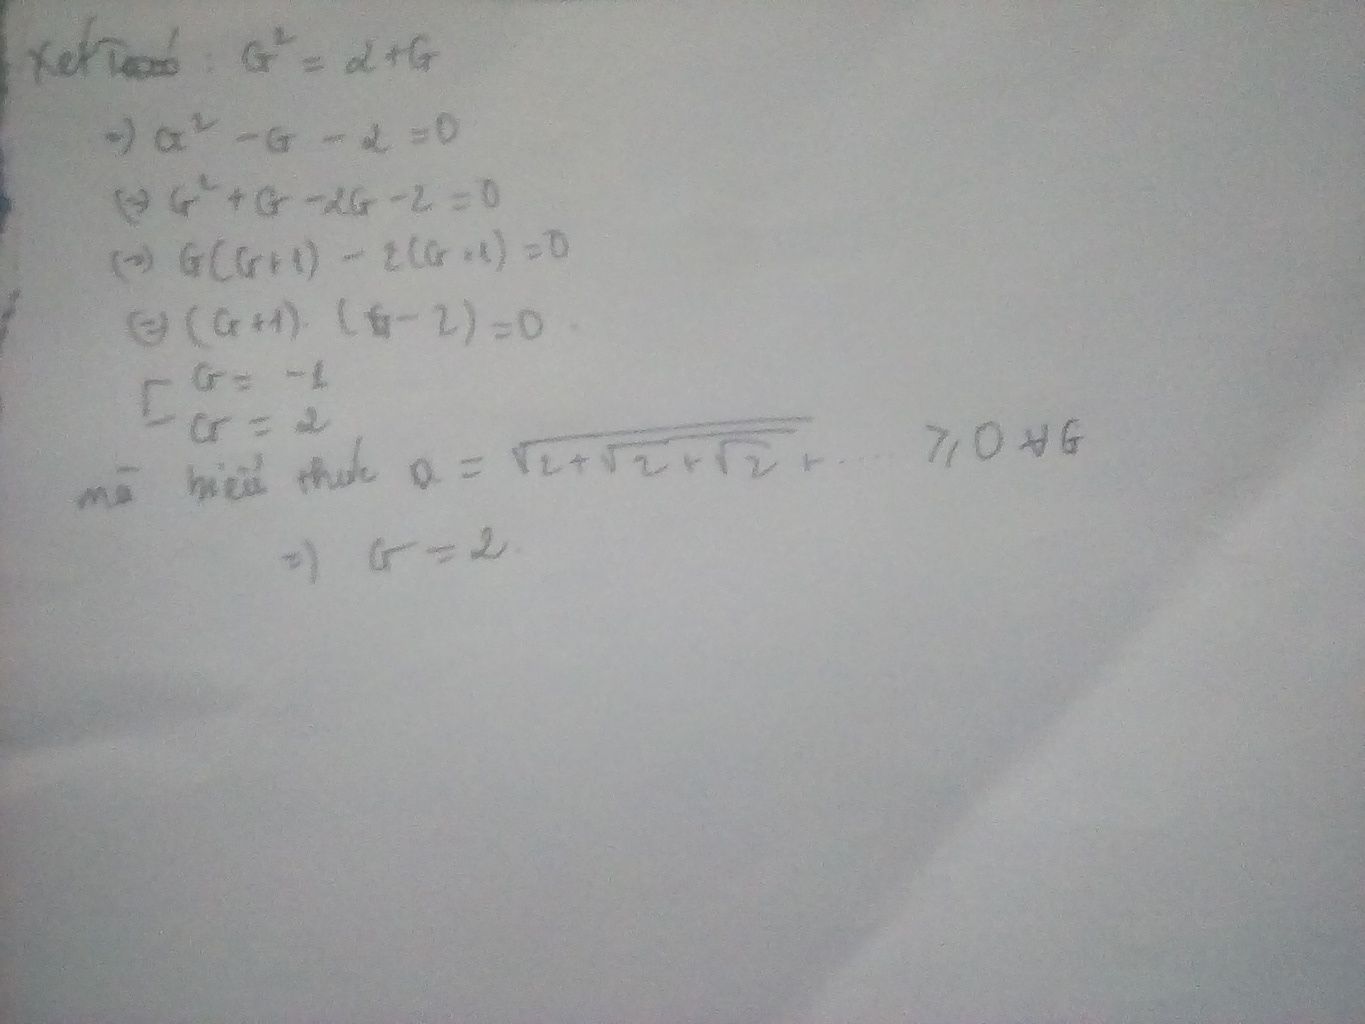 Xét : G² = 2 + G
=) G² - G - 2 = 0
(=) G² + G - 2G - 2 = 0
(=) G(G+1) - 2(G+1) = 0
(=) (G+1). (G-2) = 0
[ G = -1
G = 2
mà biểu thức G = √(2+√(2+√(2+.... ≥ 0 ∀G
=) G = 2.